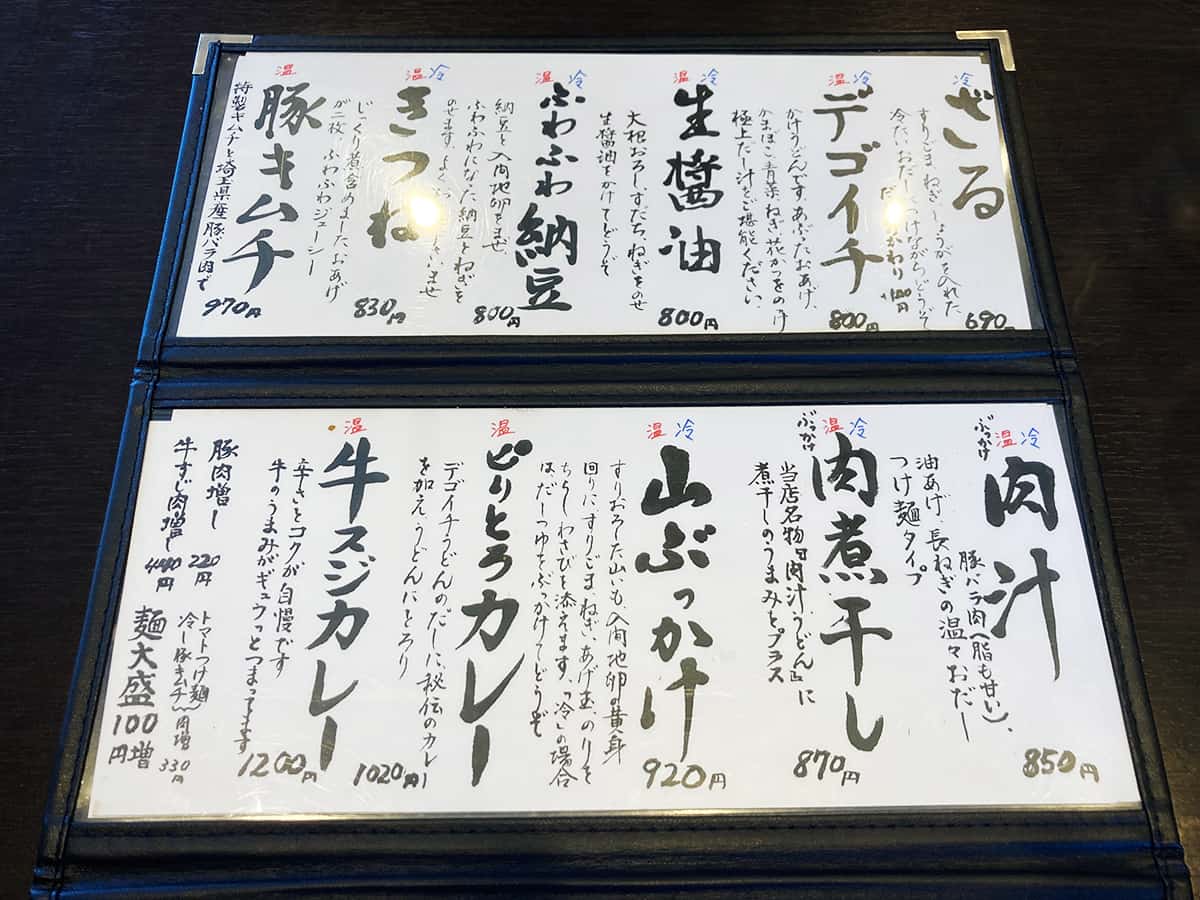 冷
ざる
すりごま、ねぎ、しょうがを入れた
冷たいおだしにつけながらどうぞ
690円
温 冷
デゴイチ
かけうどんです。あぶったおあげ、
かまぼこ、青菜、ねぎ、花かつをのせ
極上だし汁をご堪能ください。
800円
温 冷
生醤油
大根おろし、すだち、ねぎをのせ
生醤油をかけてどうぞ
800円
温 冷
ふわふわ納豆
納豆と入間地卵をまぜ
ふわふわになった納豆とねぎを
のせます。
800円
温 冷
きつね
じっくり煮含めましたおあげ
が二枚、ふわふわジューシー
830円
温
豚キムチ
特製キムチと埼玉県産豚バラ肉で
970円
ぶっかけ 温 冷
肉汁
豚バラ肉(脂も甘い)、
油あげ、長ねぎの温々おだし
つけ麺タイプ
850円
ぶっかけ 温 冷
肉煮干し
当店名物「肉汁うどん」に
煮干しのうまみをプラス
870円
温 冷
山ぶっかけ
すりおろした山いも、入間地卵の黄身
回りに、すりごま、ねぎ、あげ玉、のりを
ちらし、わさびを添えます。「冷」の場合
は、だしつゆをぶっかけてどうぞ
920円
温
ピリとろカレー
デゴイチうどんのだしに秘伝のカレー
を加え、うどんにとろり
1020円
温
牛スジカレー
辛さとコクが自慢です
牛のうまみがギュウっとつまってます
1200円
豚肉増し 220円
牛すじ肉増し 440円
トマトつけ麺
冷し豚キムチ
肉増 330円
麺大盛 100円増